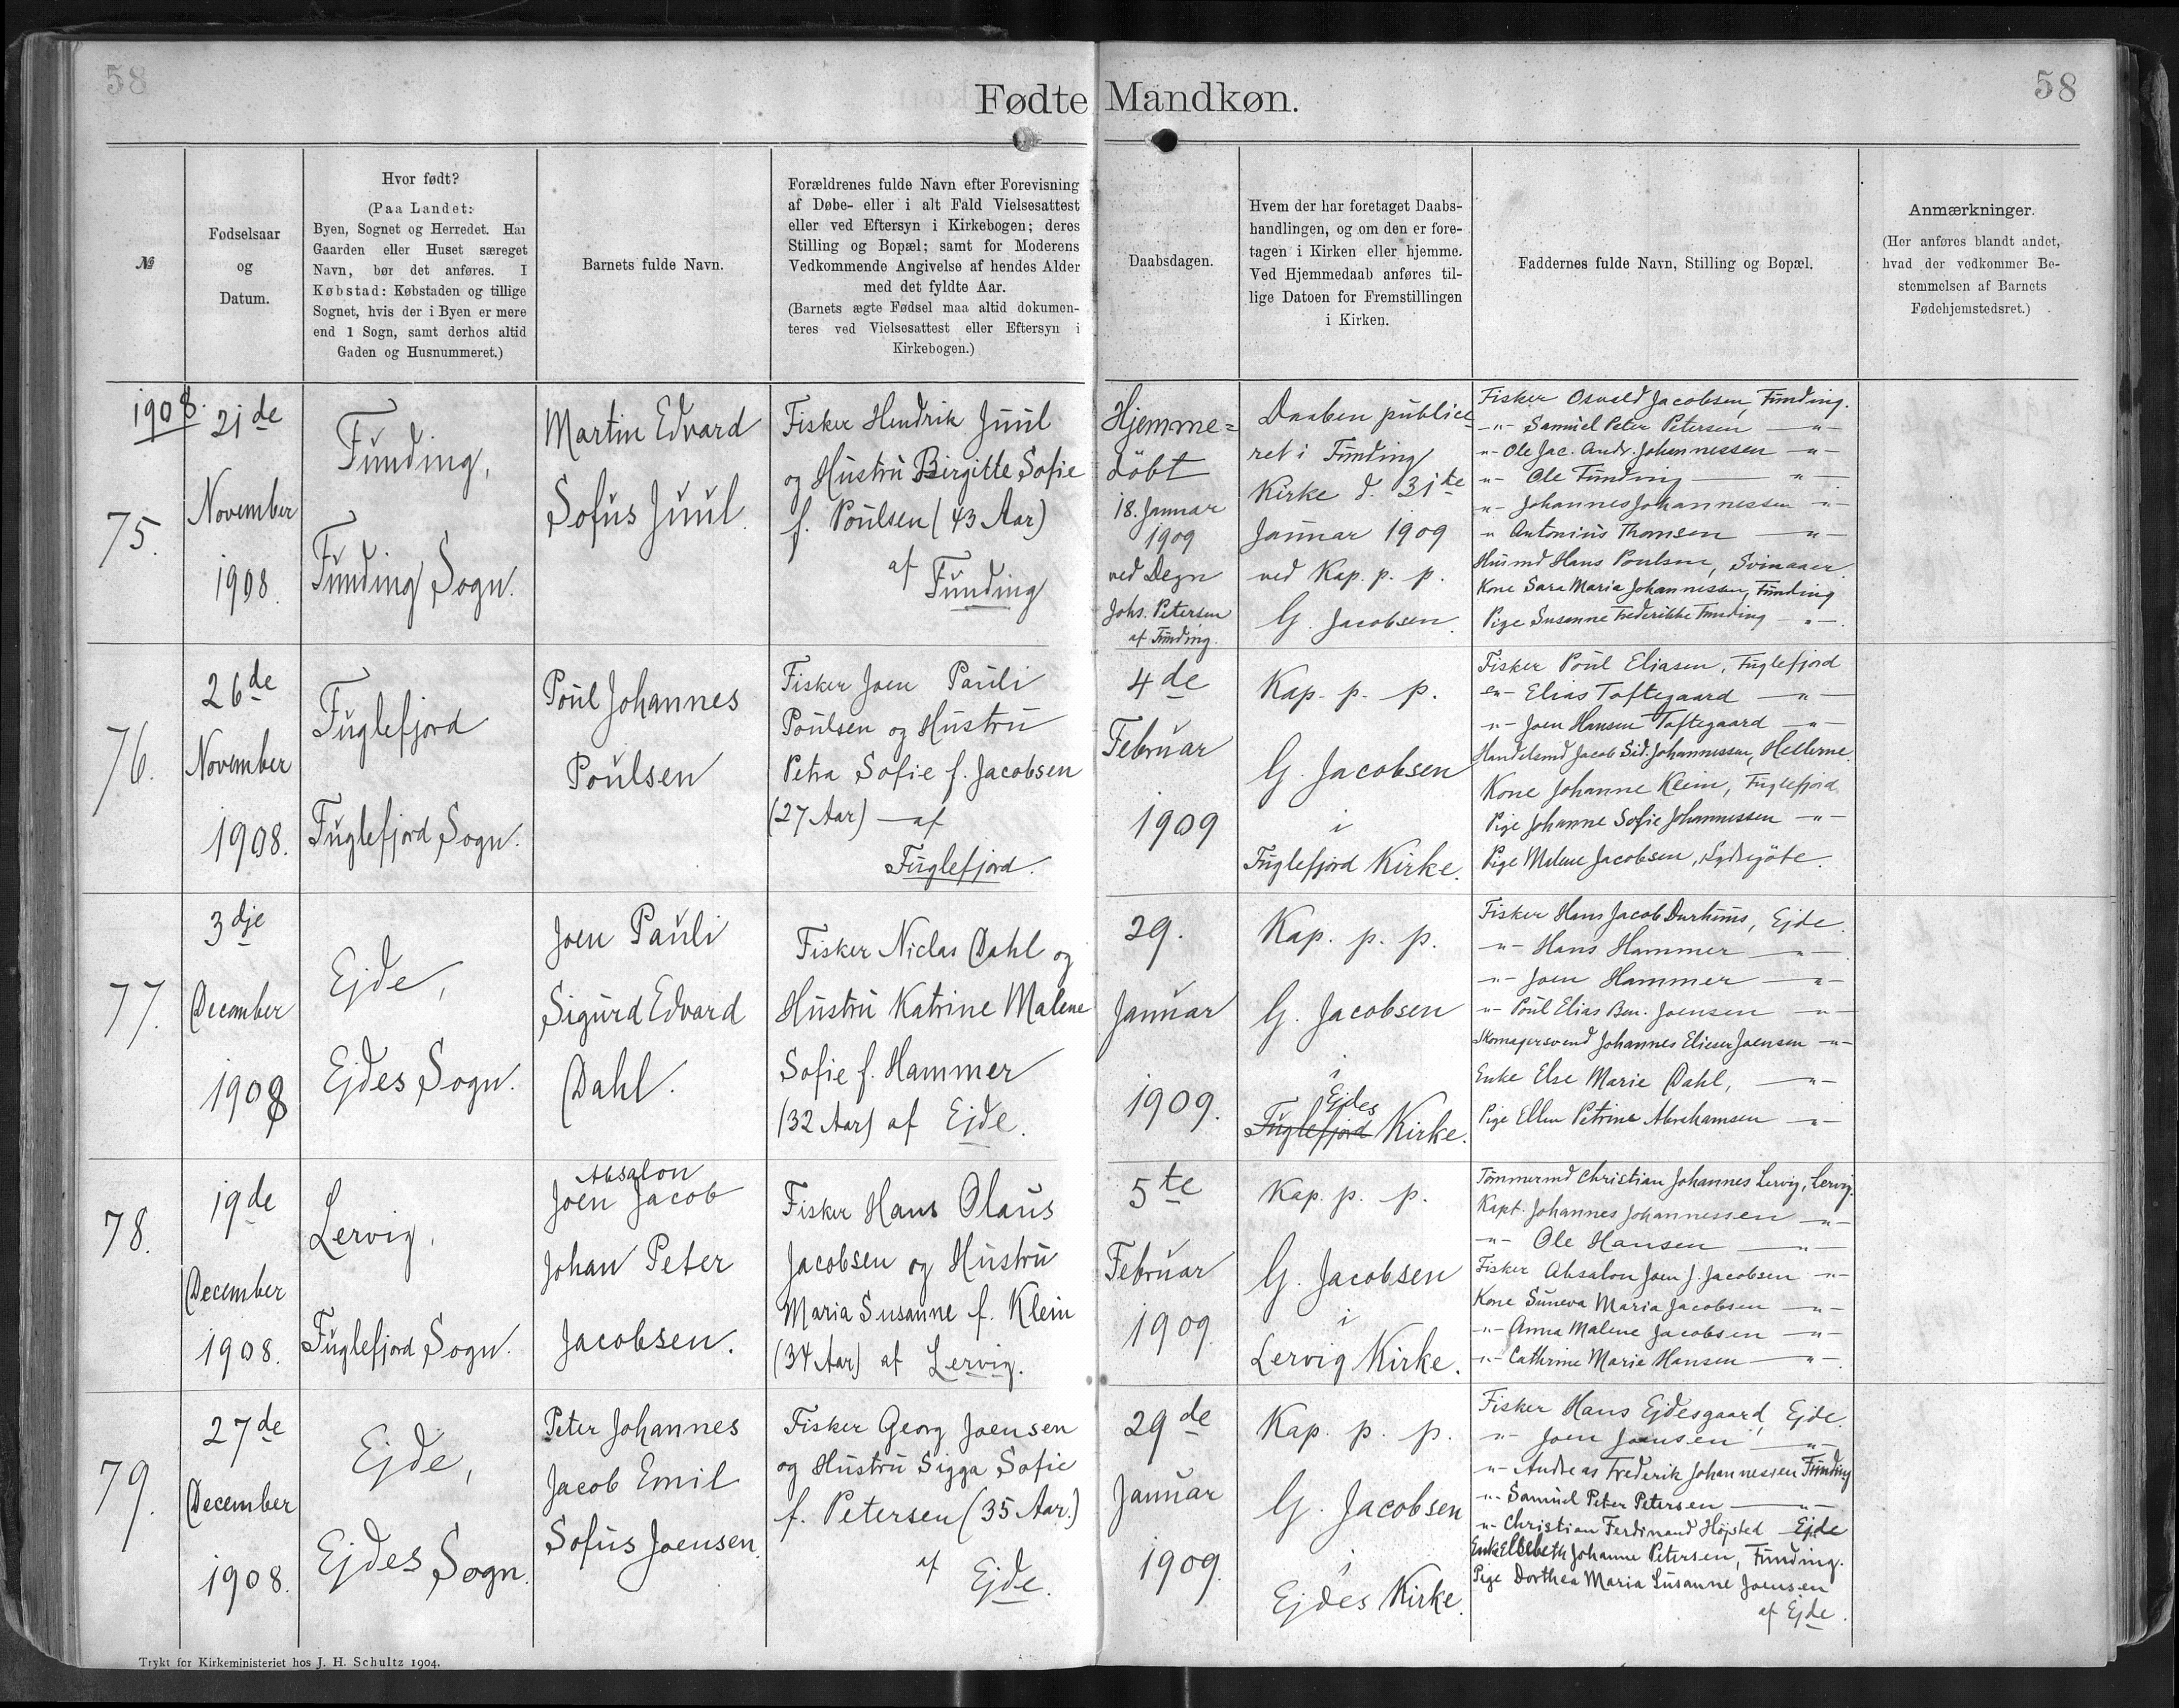 58
58
Fødte Mandkøn.
№
Fødselsaar
og
Datum.
Hvor født?
(Paa Landet:
Byen, Sognet og Herredet. Har
Gaarden eller Huset særeget
Navn, bør det anføres. I
Købstad: Købstaden og tillige
Sognet, hvis der i Byen er mere
end 1 Sogn, samt derhos altid
Gaden og Husnummeret.)
Barnets fulde Navn.
Forældrenes fulde Navn efter Forevisning
af Døbe- eller i alt Fald Vielsesattest
eller ved Eftersyn i Kirkebogen; deres
Stilling og Bopæl; samt for Moderens
Vedkommende Angivelse af hendes Alder
med det fyldte Aar.
(Barnets ægte Fødsel maa altid dokumen-
teres ved Vielsesattest eller Eftersyn i
Kirkebogen.)
Daabsdagen.
Hvem der har foretaget Daabs-
handlingen, og om den er fore-
tagen i Kirken eller hjemme.
Ved Hjemmedaab anføres til-
lige Datoen for Fremstillingen
i Kirken.
Faddernes fulde Navn, Stilling og Bopæl.
Anmærkninger.
(Her anføres blandt andet,
hvad der vedkommer Be-
stemmelsen af Barnets
Fødehjemstedsret.)
1908.
75.
21de
November
1908.
Funding,
Funding Sogn.
Martin Edvard
Sofus Juul.
Fisker Hendrik Juul
og Hustru Birgitte Sofie
f. Poulsen (43 Aar)
af
Funding
Hjemme=
døbt
18. Januar
1909
ved Degn
Johs. Petersen
af Funding.
Daaben publice-
ret i Funding
Kirke d. 31te
Januar 1909
ved Kap. p. p.
G. Jacobsen.
Fisker Osvald Jacobsen, Funding.
-"- Samuel Peter Petersen -"-
"- Ole Jac. Andr. Johannessen -"-
"- Ole Funding "-
"- Johannes Johannessen -"-
" Antonius Thomsen -"-
Husmd Hans Poulsen, Svinaaer.
Kone Sara Maria Johannessen, Funding
Pige Susanne Frederikke Funding -"-.
76.
26de
November
1908.
Fuglefjord
Fuglefjord Sogn.
Poul Johannes
Poulsen
Fisker Joen Pauli
Poulsen og Hustru
Petra Sofie f. Jacobsen
(27 Aar) — af
Fuglefjord.
4de
Februar
1909
Kap. p. p.
G. Jacobsen
i
Fuglefjord Kirke.
Fisker Poul Eliasen, Fuglefjord
-"- Elias Toftegaard -"-
-"- Joen Hansen Toftegaard -"-
Handelsmd Jacob Sid. Johannessen, Hellerne.
Kone Johanne Klein, Fuglefjord
Pige Johanne Sofie Johannessen -"-
Pige Malene Jacobsen, Sydregøte.
77.
3dje
December
1908
Ejde,
Ejdes Sogn.
Joen Pauli
Sigurd Edvard
Dahl.
Fisker Niclas Dahl og
Hustru Katrine Malene
Sofie f. Hammer
(32 Aar) af Ejde.
29.
Januar
1909.
Kap. p. p.
G. Jacobsen
i
Ejdes
Fuglefjord Kirke.
Fisker Hans Jacob Durhuus, Ejde.
-"- Hans Hammer -"-
-"- Joen Hammer -"-
-"- Poul Elias Ben. Joensen -"-
Skomagersvend Johannes Elieser Joensen -"-
Enke Else Marie Dahl, -"-
Pige Ellen Petrine Abrahamsen -"-
78.
19de
December
1908.
Lervig,
Fuglefjord Sogn.
Absalon
Joen Jacob
Johan Peter
Jacobsen.
Fisker Hans Olaus
Jacobsen og Hustru
Maria Susanne f. Klein
(34 Aar) af Lervig.
5te
Februar
1909.
Kap. p. p.
G. Jacobsen
i
Lervig Kirke.
Tømmermd Christian Johannes Lervig, Lervig.
Kapt. Johannes Johannessen -"-
-"- Ole Hansen -"-
Fisker Absalon Joen J. Jacobsen -"-
Kone Suneva Maria Jacobsen -"-
-"- Anna Malene Jacobsen -"-
-"- Cathrine Marie Hansen -"-.
79.
27de
December
1908.
Ejde,
Ejdes Sogn.
Peter Johannes
Jacob Emil
Sofus Joensen.
Fisker Georg Joensen
og Hustru Sigga Sofie
f. Petersen (35 Aar.)
af
Ejde.
29de
Januar
1909.
Kap. p. p.
G. Jacobsen
i
Ejdes Kirke.
Fisker Hans Ejdesgaard, Ejde.
-"- Joen Joensen -"-
-"- Andreas Frederik Johannessen Funding
-"- Samuel Peter Petersen -"-
-"- Christian Ferdinand Højsted Ejde
Enke Elsebeth Johanne Petersen, Funding.
Pige Dorthea Maria Susanne Joensen
af Ejde.
Trykt for Kirkeministeriet hos J. H. Schultz 1904.